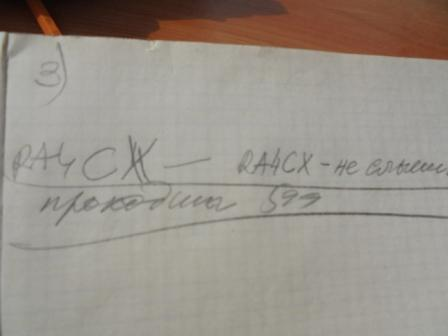 3)
RA4CX — RA4CX - не слыш
проходил 599